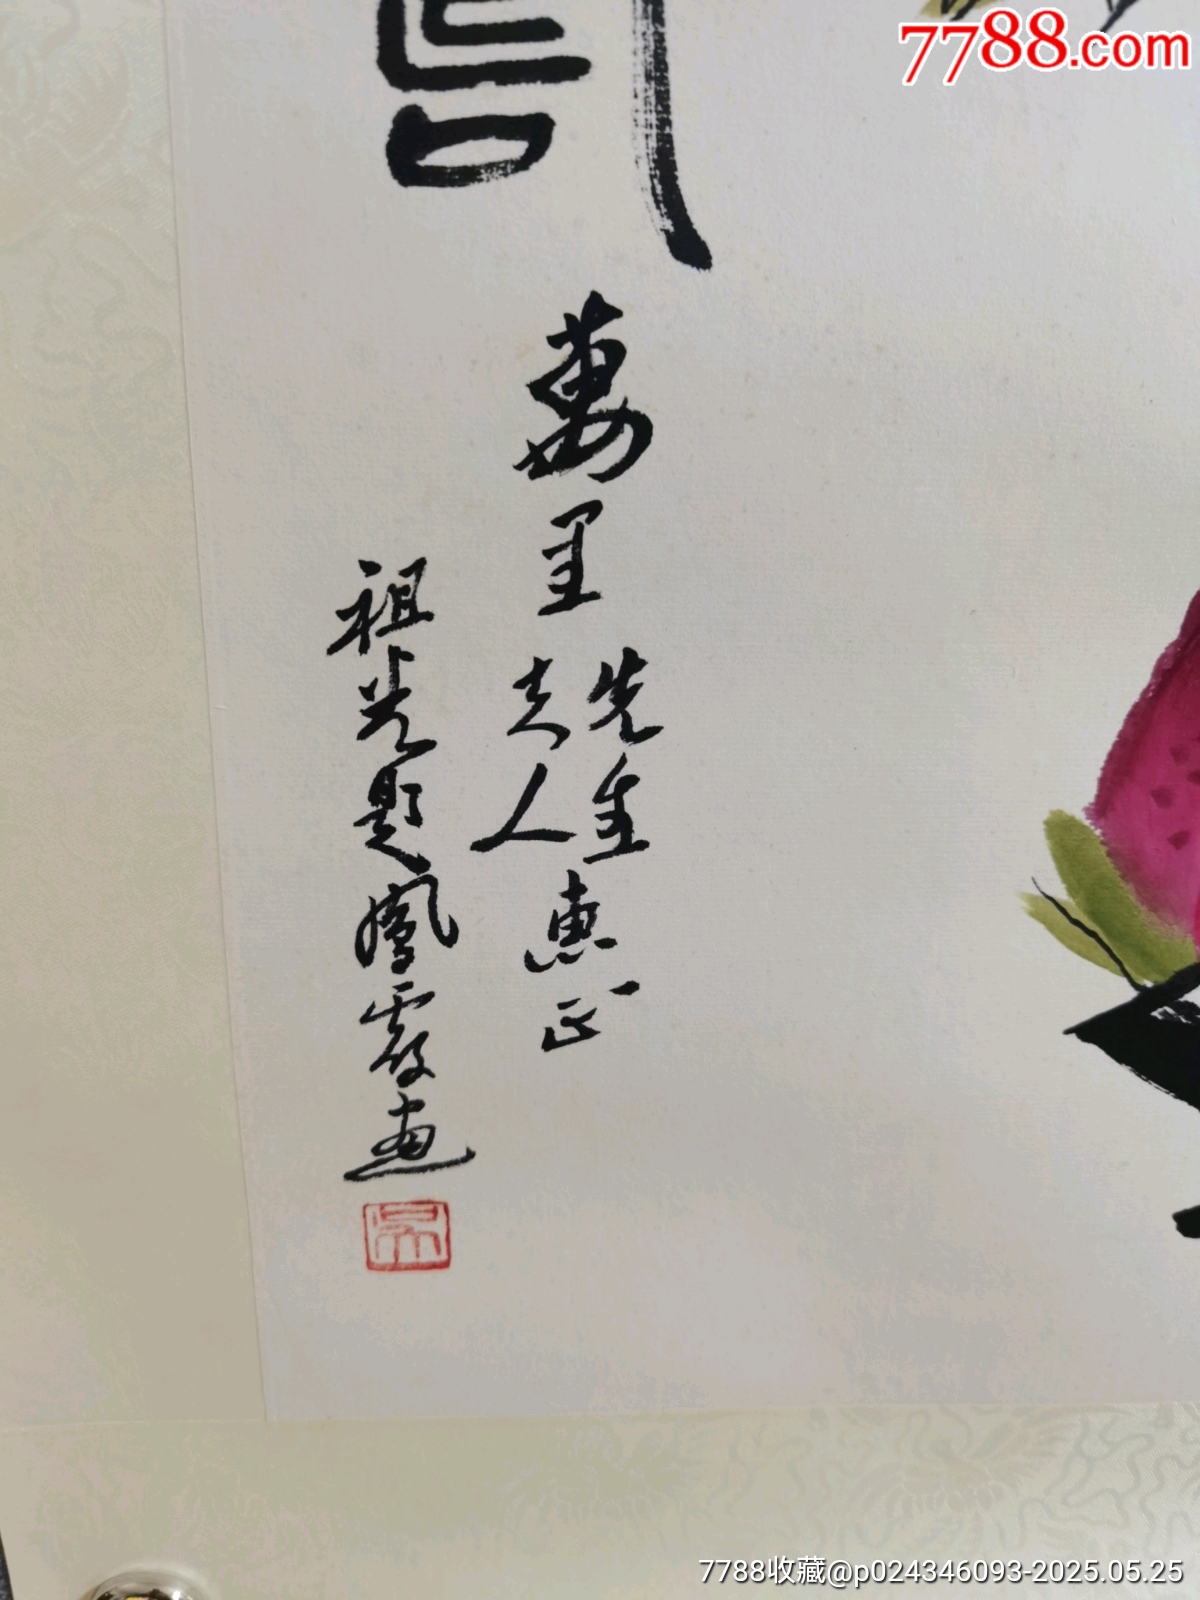 7788.com
萬里
先生
夫人
惠正
祖光題鳳霞画
吴
7788收藏@p024346093-2025.05.25